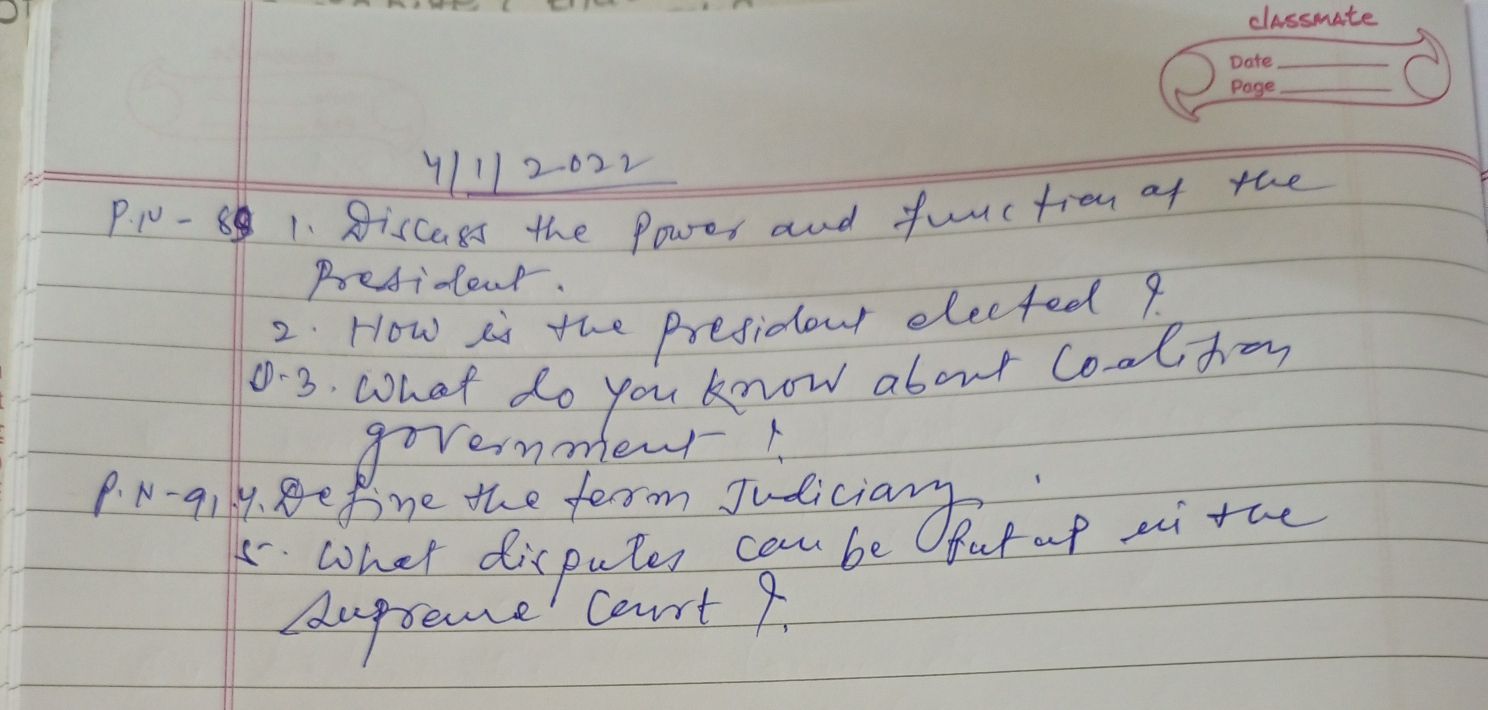 classmate
Date
Page
4/1/2022
P.N - 89 1. Discuss the Power and function of the
President.
2. How is the President elected ?
Q.3. What do you know about Coalition
government ?
P.N-91 4. Define the term Judiciary.
5. What disputes can be put up in the
Supreme Court ?